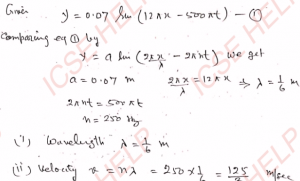 Given y = 0.07 sin (12πx - 500πt) - ①
Comparing eq ① by
y = a sin (2πx/λ - 2πnt) we get
a = 0.07 m 2πx/λ = 12πx ⇒ λ = 1/6 m
2πnt = 500πt
n = 250 Hz
(i) Wavelength λ = 1/6 m
(ii) Velocity v = nλ = 250 × 1/6 = 125/3 m/sec
ICSE HELP
ICSE HELP
ICSE HELP